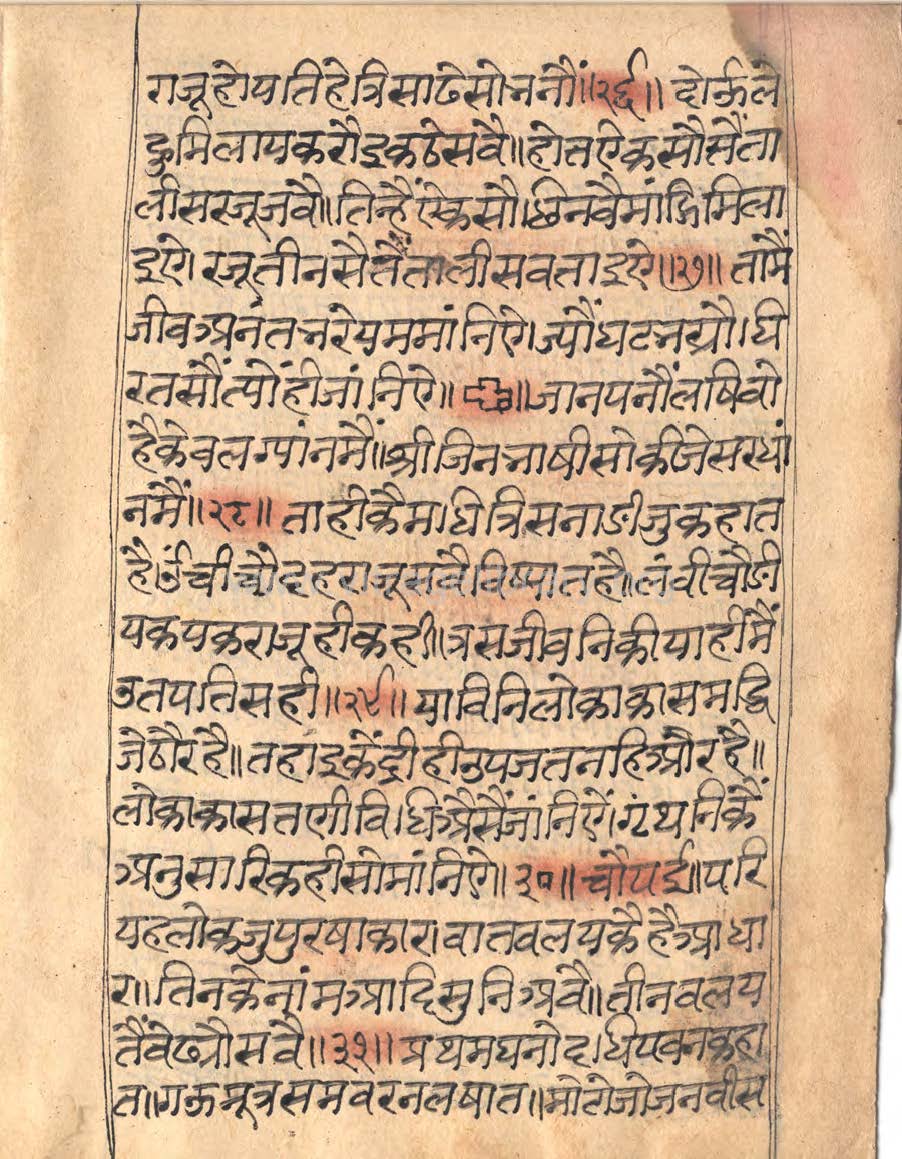 राजू होय ति हे त्रिसाढेसो ननौं॥२६॥ दोऊले
हु मिलाय करौ इकठे सवै॥ होत ऐक सौ सैंता
लीस रजू जवै॥ तिन्हैं ऐक सौ छिनवै मांहि मिला
इऐ। रजू तीन सै तैंतालीस वताइऐ॥२७॥ तामैं
जीव अनंत नरे यम मांनिऐ। ज्यौं घट नर्यौ घि
रत सौं त्यों ही जांनिऐ॥ जानपनौं लषिवो
है केवल ग्यांन मैं॥ श्री जिन नाषी सो कीजे सरधां
न मैं॥२८॥ ताही कै मधि त्रिसनाडी जु कहात
है। उंची चौदह राजू सवै विष्यात है॥ लंवी चौडी
यक यक राजू ही कही॥ त्रस जीवनि की याही मैं
उतपति सही॥२९॥ या विनि लोकाकास मद्धि
जे ठौर है॥ तहा इकेंद्री ही उपजत नहि और है॥
लोकाकास तणी विधि औसैं जांनिऐं। ग्रंथनि कैं
अनुसारि कही सो मांनिऐ॥३०॥ चौपई॥ परि
यह लोक जु पुरषाकार। वातवलय कै है आधा
र॥ तिनके नांम आदि सुनि अवै॥ तीन वलय
तैं वेढ्यौ सवै॥३१॥ प्रथम घनोदधि पवन कहा
त॥ गऊमूत्र सम वरन लषात॥ मोटो जोजन वीस